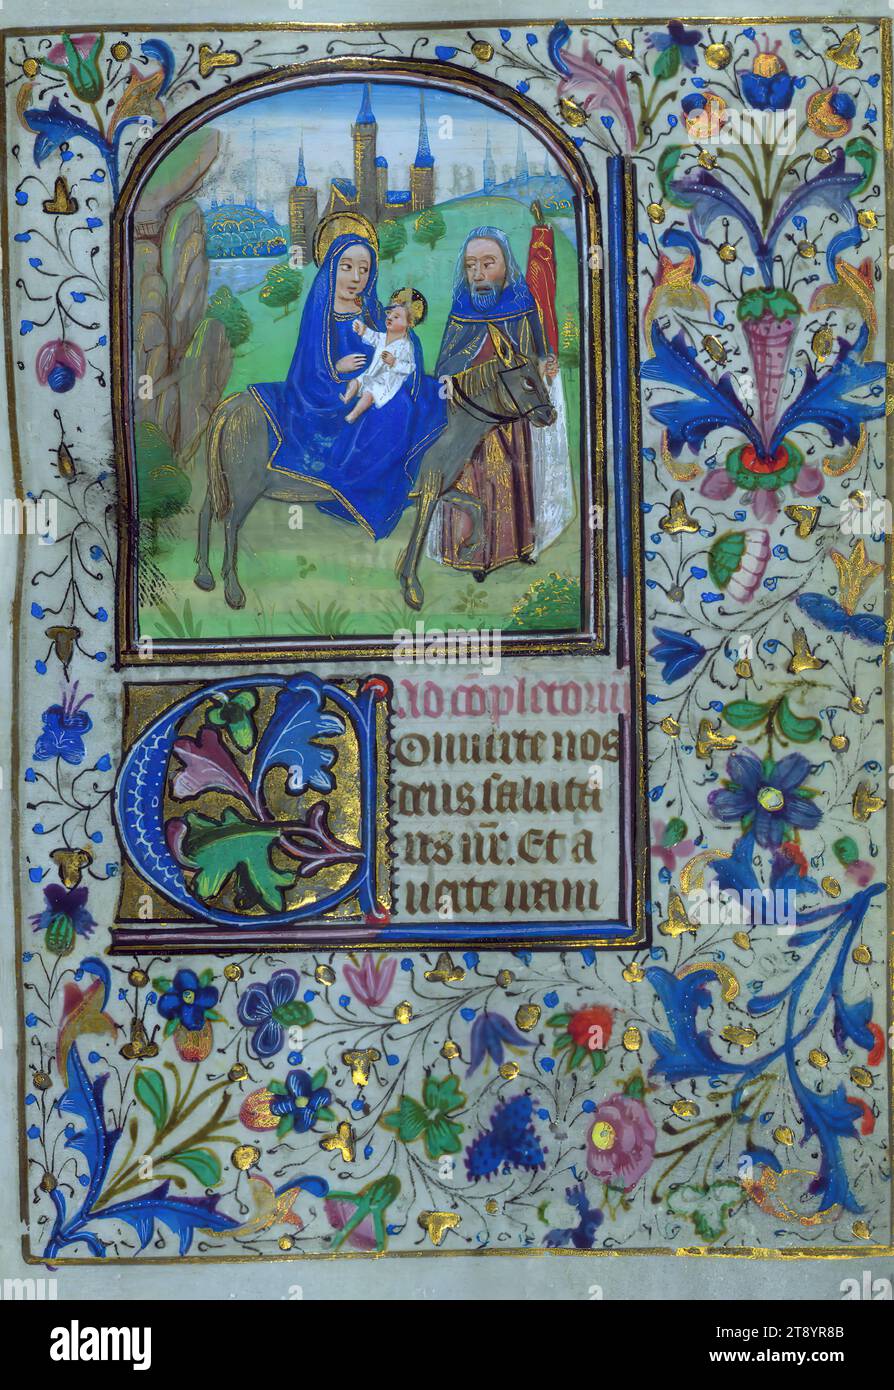 Ad cōpletoriū
Onuerte nos
deus saluta
ris nr̄. Et a
uerte iram
alamy
Image ID: 2T8YR8B
www.alamy.com